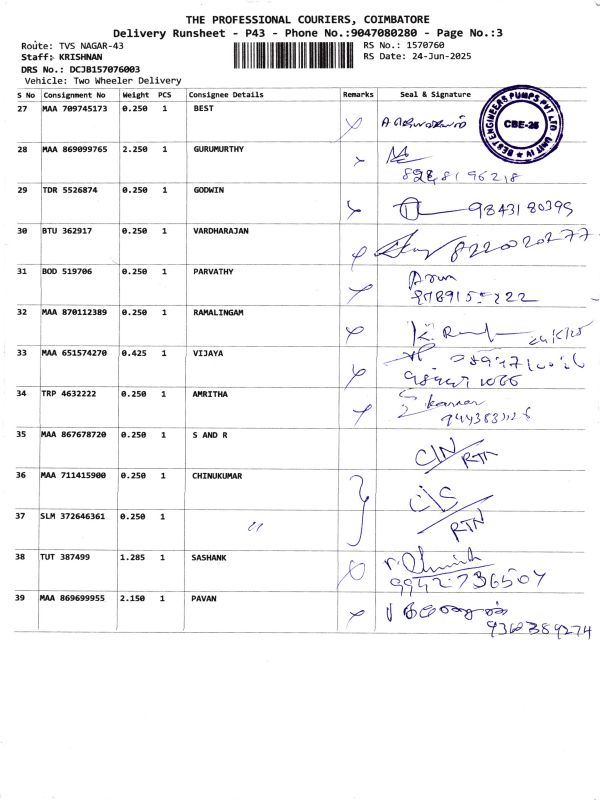 THE PROFESSIONAL COURIERS, COIMBATORE
Delivery Runsheet - P43 - Phone No.:9047080280 - Page No.:3
Route: TVS NAGAR-43 RS No.: 1570760
Staff: KRISHNAN RS Date: 24-Jun-2025
DRS No.: DCJB157076003
Vehicle: Two Wheeler Delivery
S No Consignment No Weight PCS Consignee Details Remarks Seal & Signature
27 MAA 709745173 0.250 1 BEST
BEST ENGINEERS PUMPS PVT LTD. UNIT IV
CBE-25
28 MAA 869099765 2.250 1 GURUMURTHY
29 TDR 5526874 0.250 1 GODWIN
9843180395
30 BTU 362917 0.250 1 VARDHARAJAN
8220020277
31 BOD 519706 0.250 1 PARVATHY
Arun
32 MAA 870112389 0.250 1 RAMALINGAM
33 MAA 651574270 0.425 1 VIJAYA
34 TRP 4632222 0.250 1 AMRITHA
35 MAA 867678720 0.250 1 S AND R
C/N
RTN
36 MAA 711415900 0.250 1 CHINUKUMAR
C/S
37 SLM 372646361 0.250 1 "
RTN
38 TUT 387499 1.285 1 SASHANK
9942736504
39 MAA 869699955 2.150 1 PAVAN
9360389274